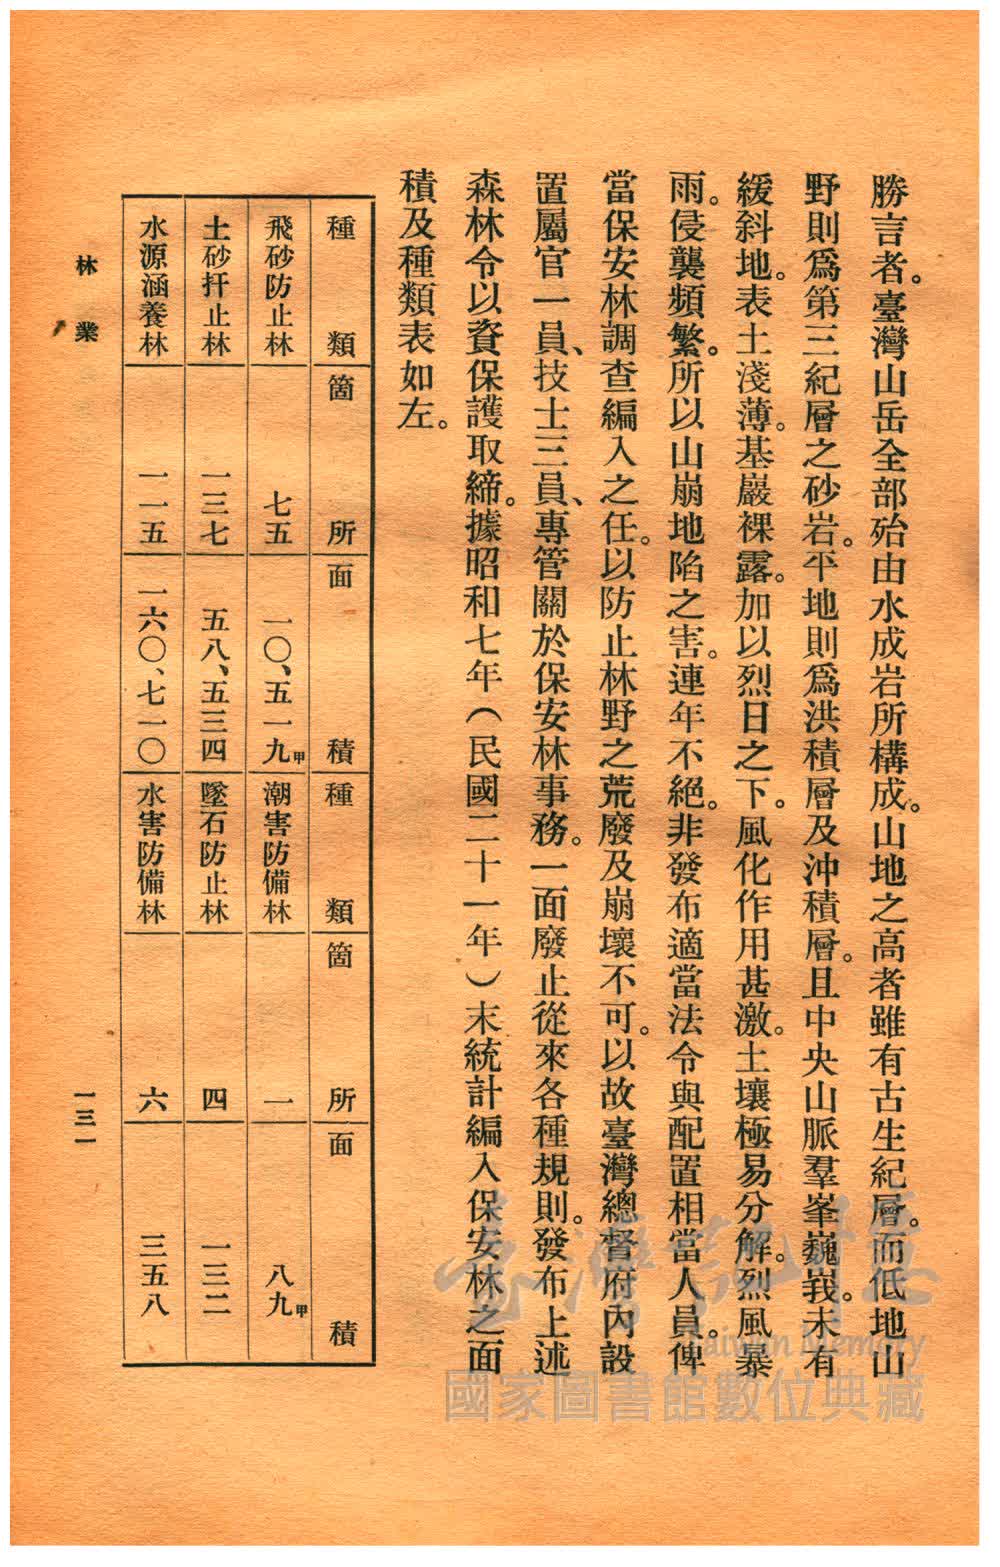 勝言者。臺灣山岳全部殆由水成岩所構成。山地之高者雖有古生紀層。而低地山
野則爲第三紀層之砂岩。平地則爲洪積層及沖積層。且中央山脈羣峯巍峩。未有
緩斜地。表土淺薄。基巖裸露。加以烈日之下。風化作用甚激。土壤極易分解。烈風暴
雨。侵襲頻繁。所以山崩地陷之害。連年不絕。非發布適當法令與配置相當人員。俾
當保安林調查編入之任。以防止林野之荒廢及崩壞不可。以故臺灣總督府內設
置屬官一員、技士三員、專管關於保安林事務。一面廢止從來各種規則。發布上述
森林令以資保護取締。據昭和七年（民國二十一年）末統計編入保安林之面
積及種類表如左。
種類 箇所 面積 種類 箇所 面積
飛砂防止林 七五 一〇、五一九甲 潮害防備林 一 八九甲
土砂扞止林 一三七 五八、五三四 墜石防止林 四 一三二
水源涵養林 一一五 一六〇、七一〇 水害防備林 六 三五八
林業
一三一
臺灣記憶
Taiwan Memory
國家圖書館數位典藏